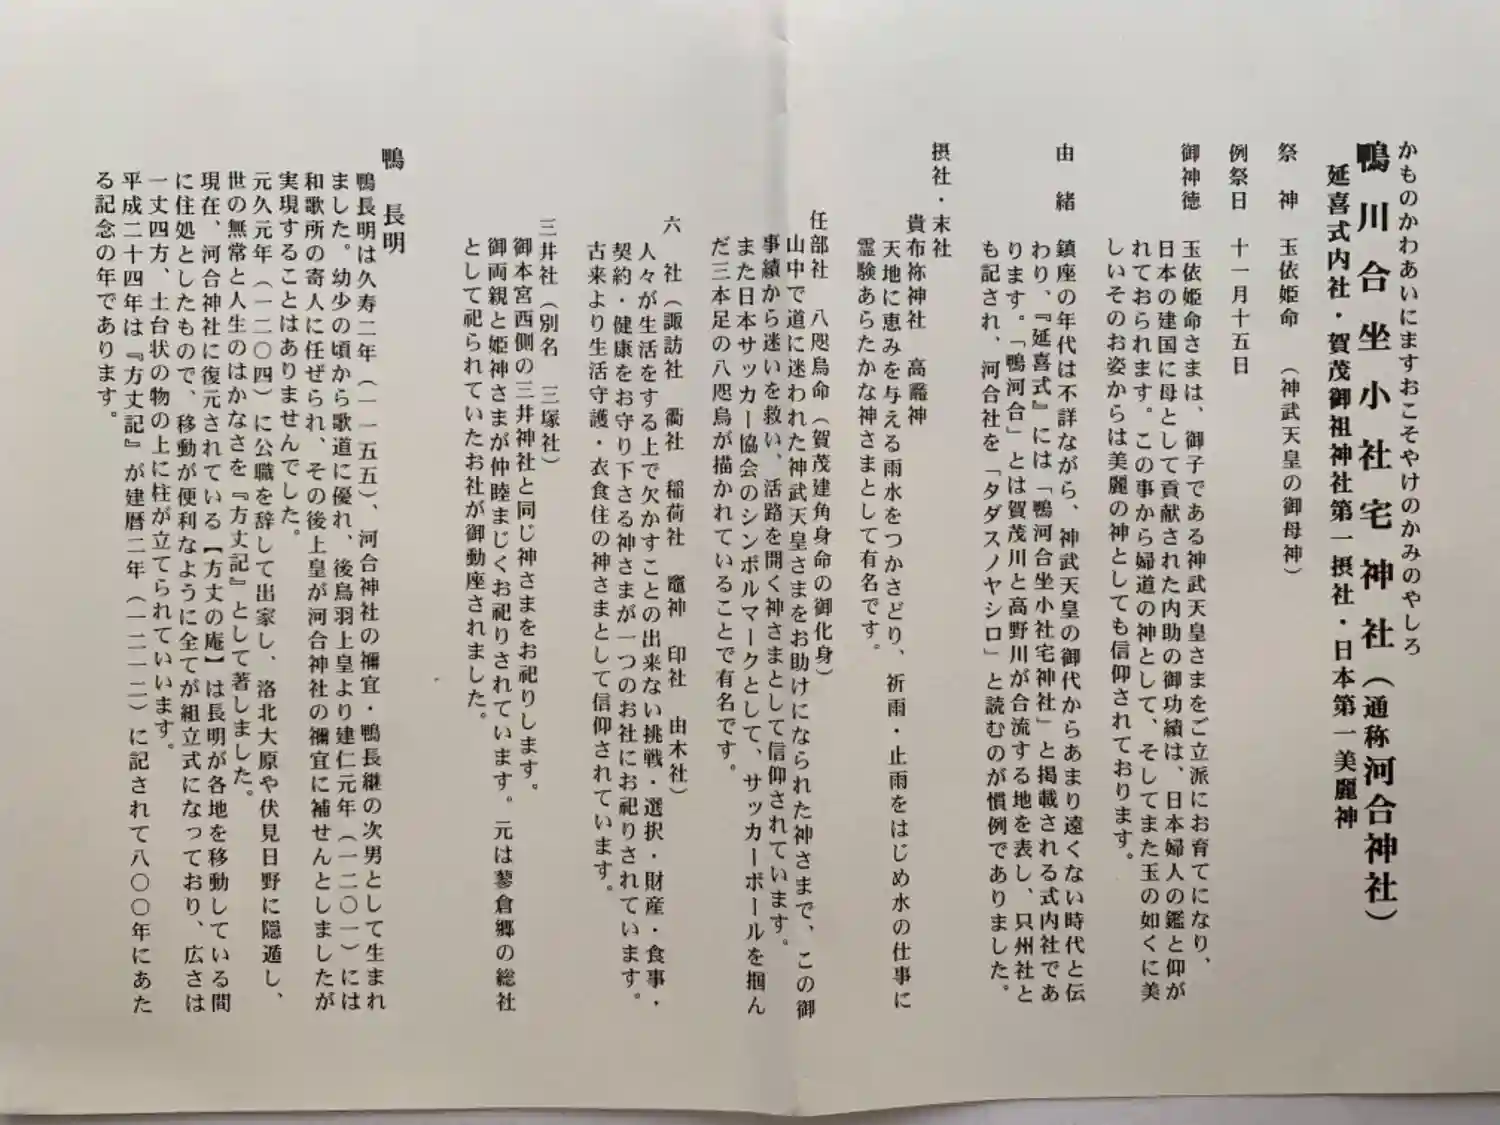 かものかわあいにますおこそやけのかみのやしろ
鴨川合坐小社宅神社（通称河合神社）
延喜式内社・賀茂御祖神社第一摂社・日本第一美麗神
祭　神　玉依姫命　（神武天皇の御母神）
例祭日　十一月十五日
御神徳　玉依姫命さまは、御子である神武天皇さまをご立派にお育てになり、
日本の建国に母として貢献された内助の御功績は、日本婦人の鑑と仰が
れておられます。この事から婦道の神として、そしてまた玉の如くに美
しいそのお姿からは美麗の神としても信仰されております。
由　緒　鎮座の年代は不詳ながら、神武天皇の御代からあまり遠くない時代と伝
わり、『延喜式』には「鴨河合坐小社宅神社」と掲載される式内社であ
ります。「鴨河合」とは賀茂川と高野川が合流する地を表し、只州社と
も記され、河合社を「タダスノヤシロ」と読むのが慣例でありました。
摂社・末社
貴布祢神社　高龗神
天地に恵みを与える雨水をつかさどり、祈雨・止雨をはじめ水の仕事に
霊験あらたかな神さまとして有名です。
任部社　八咫烏命（賀茂建角身命の御化身）
山中で道に迷われた神武天皇さまをお助けになられた神さまで、この御
事績から迷いを救い、活路を開く神さまとして信仰されています。
また日本サッカー協会のシンボルマークとして、サッカーボールを掴ん
だ三本足の八咫烏が描かれていることで有名です。
六　社（諏訪社　衢社　稲荷社　竈神　印社　由木社）
人々が生活をする上で欠かすことの出来ない挑戦・選択・財産・食事・
契約・健康をお守り下さる神さまが一つのお社にお祀りされています。
古来より生活守護・衣食住の神さまとして信仰されています。
三井社（別名　三塚社）
御本宮西側の三井神社と同じ神さまをお祀りします。
御両親と姫神さまが仲睦まじくお祀りされています。元は蓼倉郷の総社
として祀られていたお社が御動座されました。
鴨　長明
鴨長明は久寿二年（一一五五）、河合神社の禰宜・鴨長継の次男として生まれ
ました。幼少の頃から歌道に優れ、後鳥羽上皇より建仁元年（一二〇一）には
和歌所の寄人に任ぜられ、その後上皇が河合神社の禰宜に補せんとしましたが
実現することはありませんでした。
元久元年（一二〇四）に公職を辞して出家し、洛北大原や伏見日野に隠遁し、
世の無常と人生のはかなさを『方丈記』として著しました。
現在、河合神社に復元されている【方丈の庵】は長明が各地を移動している間
に住処としたもので、移動が便利なように全てが組立式になっており、広さは
一丈四方、土台状の物の上に柱が立てられていいます。
平成二十四年は『方丈記』が建暦二年（一二一二）に記されて八〇〇年にあた
る記念の年であります。